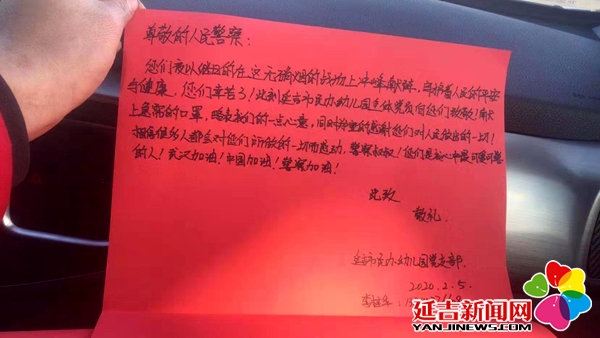 尊敬的人民警察：
您们夜以继日的在这无硝烟的战场上冲峰献阵，守护着人民的平安
与健康，您们辛苦了！此刻延吉市民办幼儿园全体党员向您们致敬！献
上急需的口罩，略表我们的一点心意，同时郑重的感谢您们对人民做出的一切！
相信很多人都会对您们所做的一切而感动，警察叔叔！您们是
的人！武汉加油！中国加油！警察加油！
此致
敬礼
延吉市民办幼儿园党支部
2020.2.5.
延吉新闻网
YANJINEWS.COM